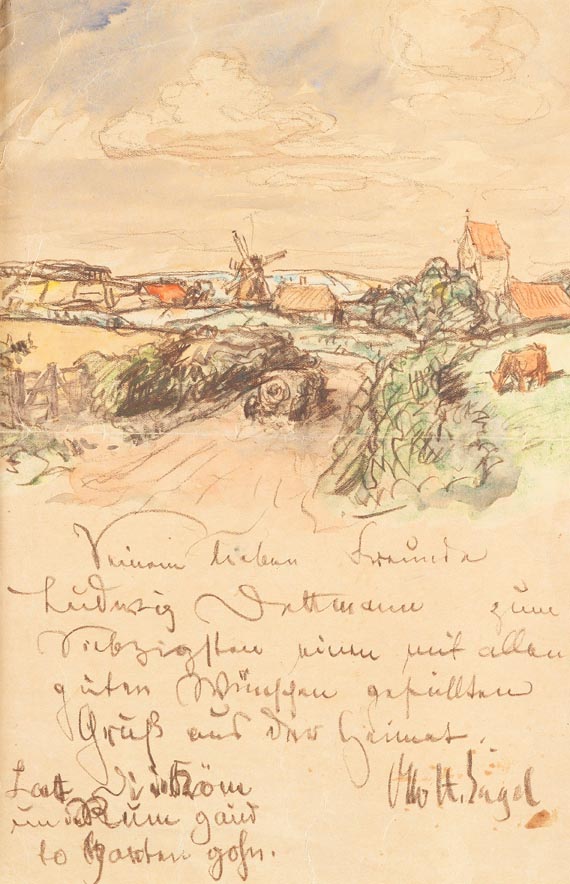 Seinem lieben Freunde
Ludwig Dettmann zum
Siebzigsten einen mit allen
guten Wünschen gefüllten
Gruß aus der Heimat.
Otto H. Engel
Latt Di de Köm
un de Rum gaud
to Harten gohn.